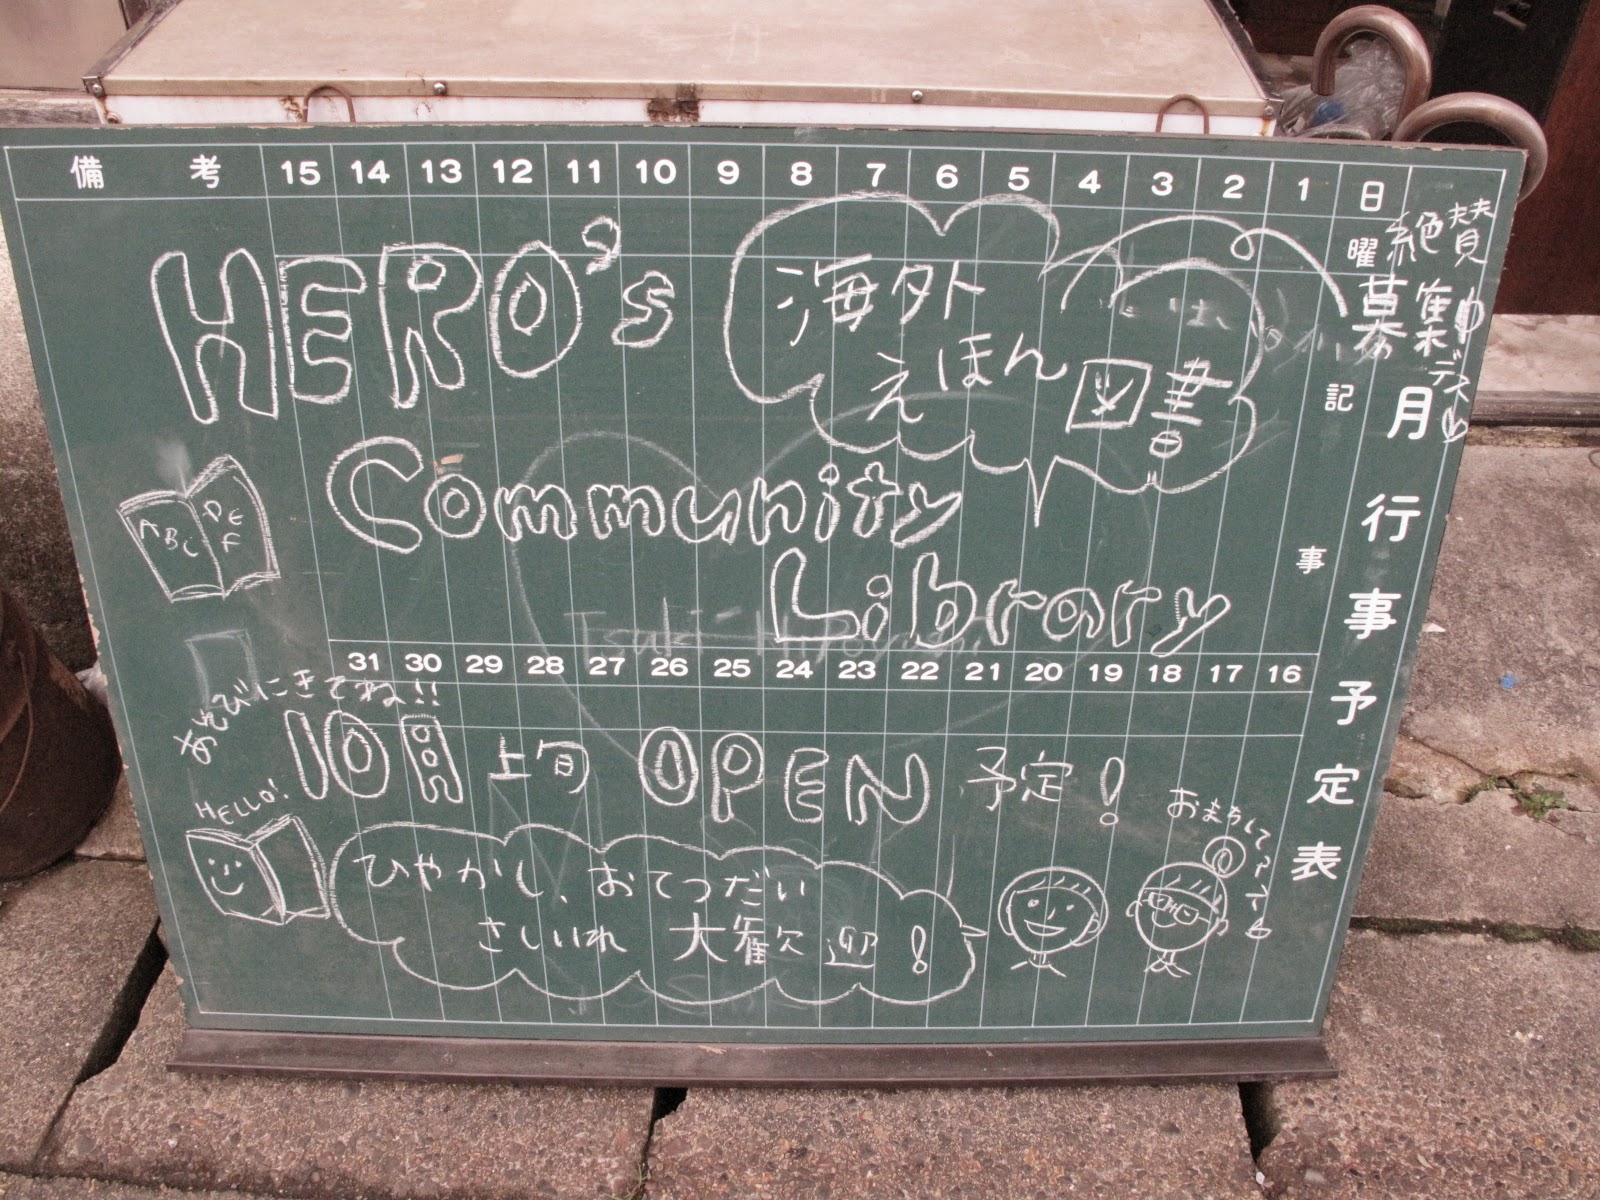 備考 15 14 13 12 11 10 9 8 7 6 5 4 3 2 1 日
曜
記
事
月行事予定表
絶賛
募集中デス
HERO's
海外
えほん
図書
Community
Library
ABC
DE
F
31 30 29 28 27 26 25 24 23 22 21 20 19 18 17 16
Tsuki-Hiroyuki
あそびにきてね!!
10月上旬 OPEN 予定!
HELLO!
ひやかし、おてつだい
さしいれ 大歓迎!
おまちして